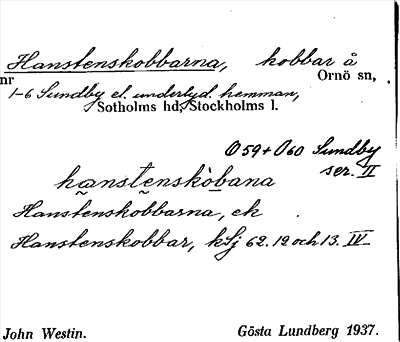 Hanstenskobbarna, kobbar å
nr Ornö sn,
1-6 Sundby el. underlyd. hemman,
Sotholms hd, Stockholms l.
Ö59+Ö60 Sundby
ser. II
hanstenskòbana
Hanstenskobbarna, ek
Hanstenskobbar, kSj 62. 12 och 13. IV
John Westin. Gösta Lundberg 1937.